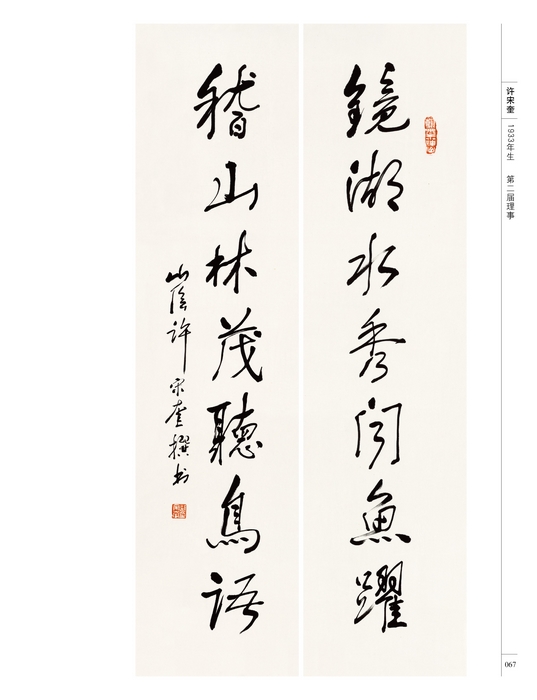 鏡湖水秀闻魚躍
稽山林茂聽鳥語
山陰许宋奎撰书
许宋奎
1933年生 第二届理事
067